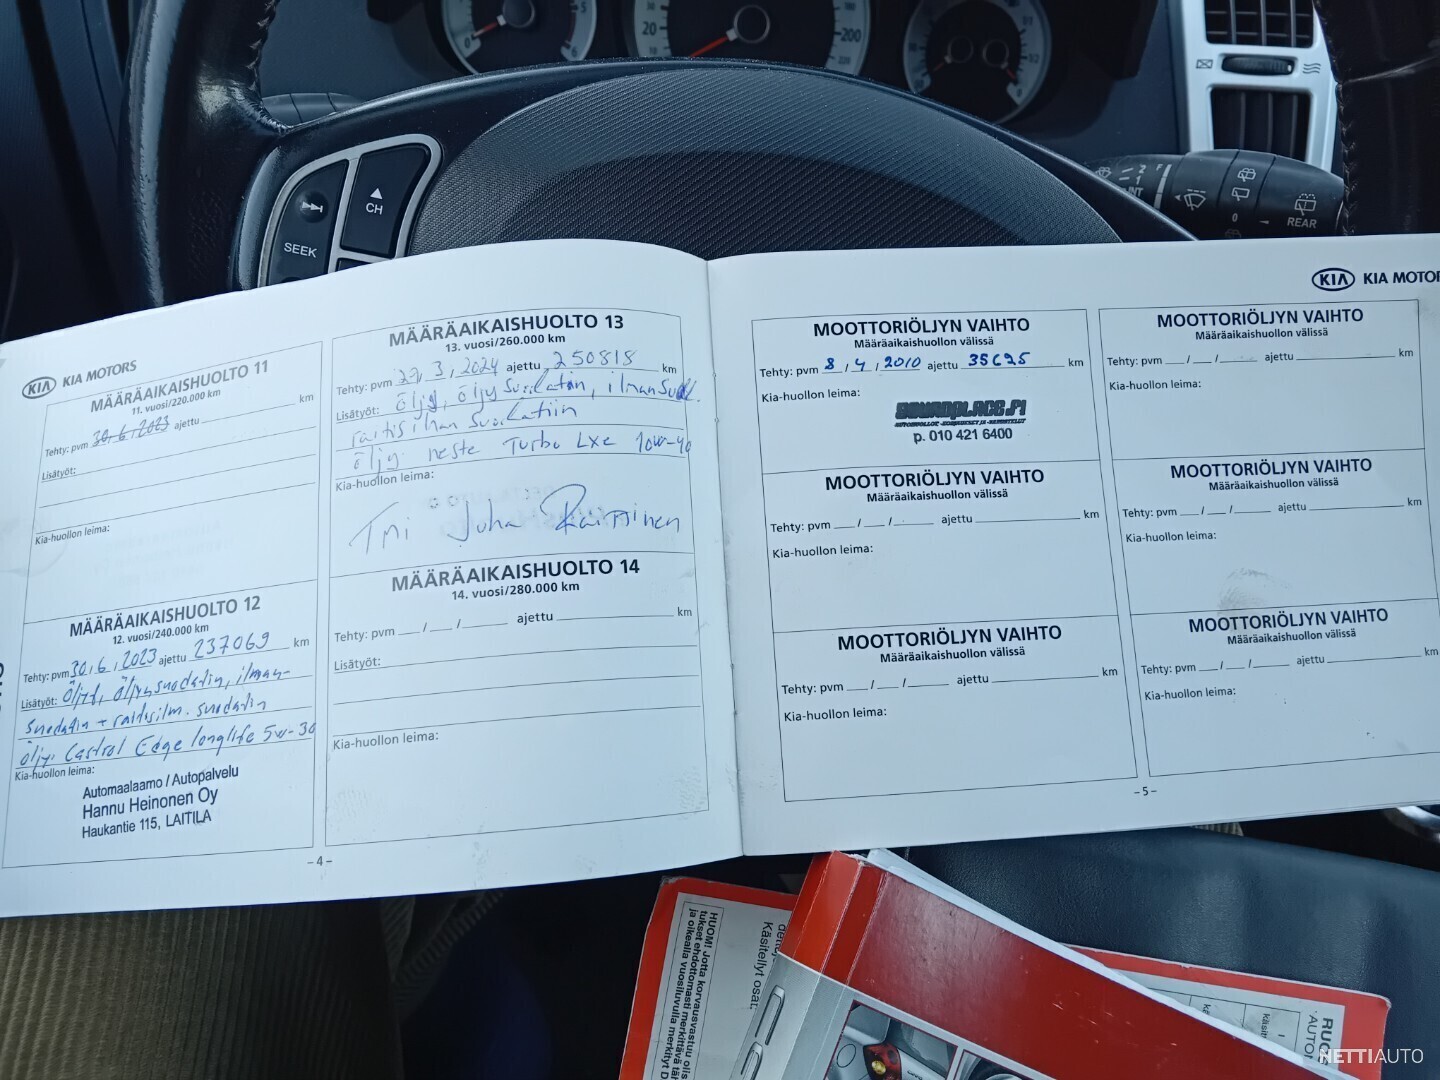 SEEK
CH
20
200
REAR
0
KIA KIA MOTORS
MÄÄRÄAIKAISHUOLTO 11
11. vuosi/220.000 km
Tehty: pvm 30.6.2023 ajettu km
Lisätyöt:
Kia-huollon leima:
MÄÄRÄAIKAISHUOLTO 12
12. vuosi/240.000 km
Tehty: pvm 30.6.2023 ajettu 237069 km
Lisätyöt: Öljyt, öljynsuodatin, ilman-
suodatin + raitisilm. suodatin
öljy: Castrol Edge longlife 5w-30
Kia-huollon leima:
Automaalaamo / Autopalvelu
Hannu Heinonen Oy
Haukantie 115, LAITILA
MÄÄRÄAIKAISHUOLTO 13
13. vuosi/260.000 km
Tehty: pvm 27.3.2024 ajettu 250818 km
Lisätyöt: öljy, öljysuodatin, ilmansuod.
raitisilman suodatiin
öljy neste Turbo LXE 10W-40
Kia-huollon leima:
Tmi Juha
MÄÄRÄAIKAISHUOLTO 14
14. vuosi/280.000 km
Tehty: pvm __/__/____ ajettu ________ km
Lisätyöt:
Kia-huollon leima:
- 4 -
KIA KIA MOTOR
MOOTTORIÖLJYN VAIHTO
Määräaikaishuollon välissä
Tehty: pvm 8/4/2010 ajettu 35625 km
Kia-huollon leima:
p. 010 421 6400
MOOTTORIÖLJYN VAIHTO
Määräaikaishuollon välissä
Tehty: pvm __/__/____ ajettu ________ km
Kia-huollon leima:
MOOTTORIÖLJYN VAIHTO
Määräaikaishuollon välissä
Tehty: pvm __/__/____ ajettu ________ km
Kia-huollon leima:
MOOTTORIÖLJYN VAIHTO
Määräaikaishuollon välissä
Tehty: pvm __/__/____ ajettu ________ km
Kia-huollon leima:
MOOTTORIÖLJYN VAIHTO
Määräaikaishuollon välissä
Tehty: pvm __/__/____ ajettu ________ km
Kia-huollon leima:
MOOTTORIÖLJYN VAIHTO
Määräaikaishuollon välissä
Tehty: pvm __/__/____ ajettu ________ km
Kia-huollon leima:
- 5 -
HUOM! Jotta korvausvastuu olis
tukset ehdottomasti merkittävä täl
ja oikealla vuosiluvulla merkityt D
Käsitellyt osat:
NETTIAUTO